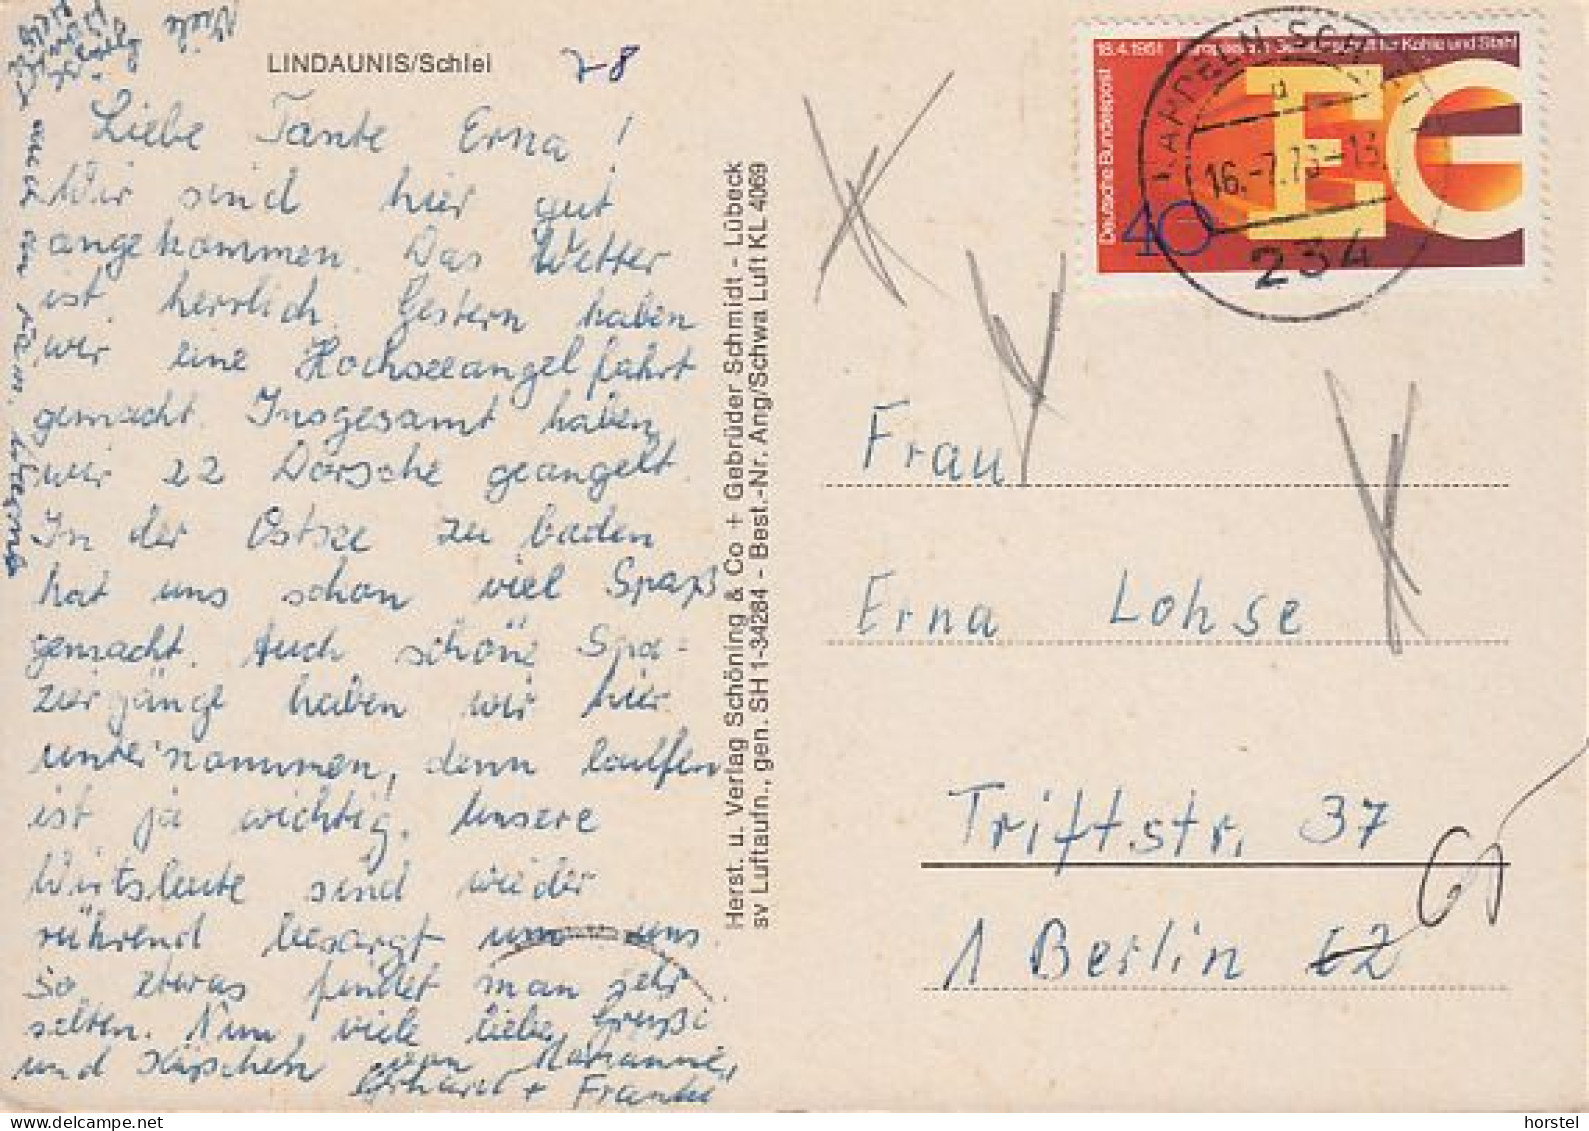 LINDAUNIS/Schlei
Liebe Tante Erna!
Wir sind hier gut
angekommen. Das Wetter
ist herrlich. Gestern haben
wir eine Hochseeangelfahrt
gemacht. Insgesamt haben
wir 22 Dorsche geangelt.
In der Ostsee zu baden
hat uns schon viel Spaß
gemacht. Auch schöne Spa-
ziergänge haben wir hier
unternommen, denn laufen
ist ja wichtig. Unsere
Wirtsleute sind wieder
rührend besorgt um uns.
So etwas findet man sehr
selten. Nun viele liebe Grüße
und Küßchen von Marianne,
Erhard + Frank
Viele
Herst. u. Verlag Schöning & Co + Gebrüder Schmidt - Lübeck
sv Luftaufn., gen. SH 1-34284 - Best.-Nr. Ang/Schwa Luft KL 4069
18.4.1951 Europäische Gemeinschaft für Kohle und Stahl
Deutsche Bundespost
40
EG
16.-7.76-13
234
Frau
Erna Lohse
Triftstr. 37
1 Berlin
65